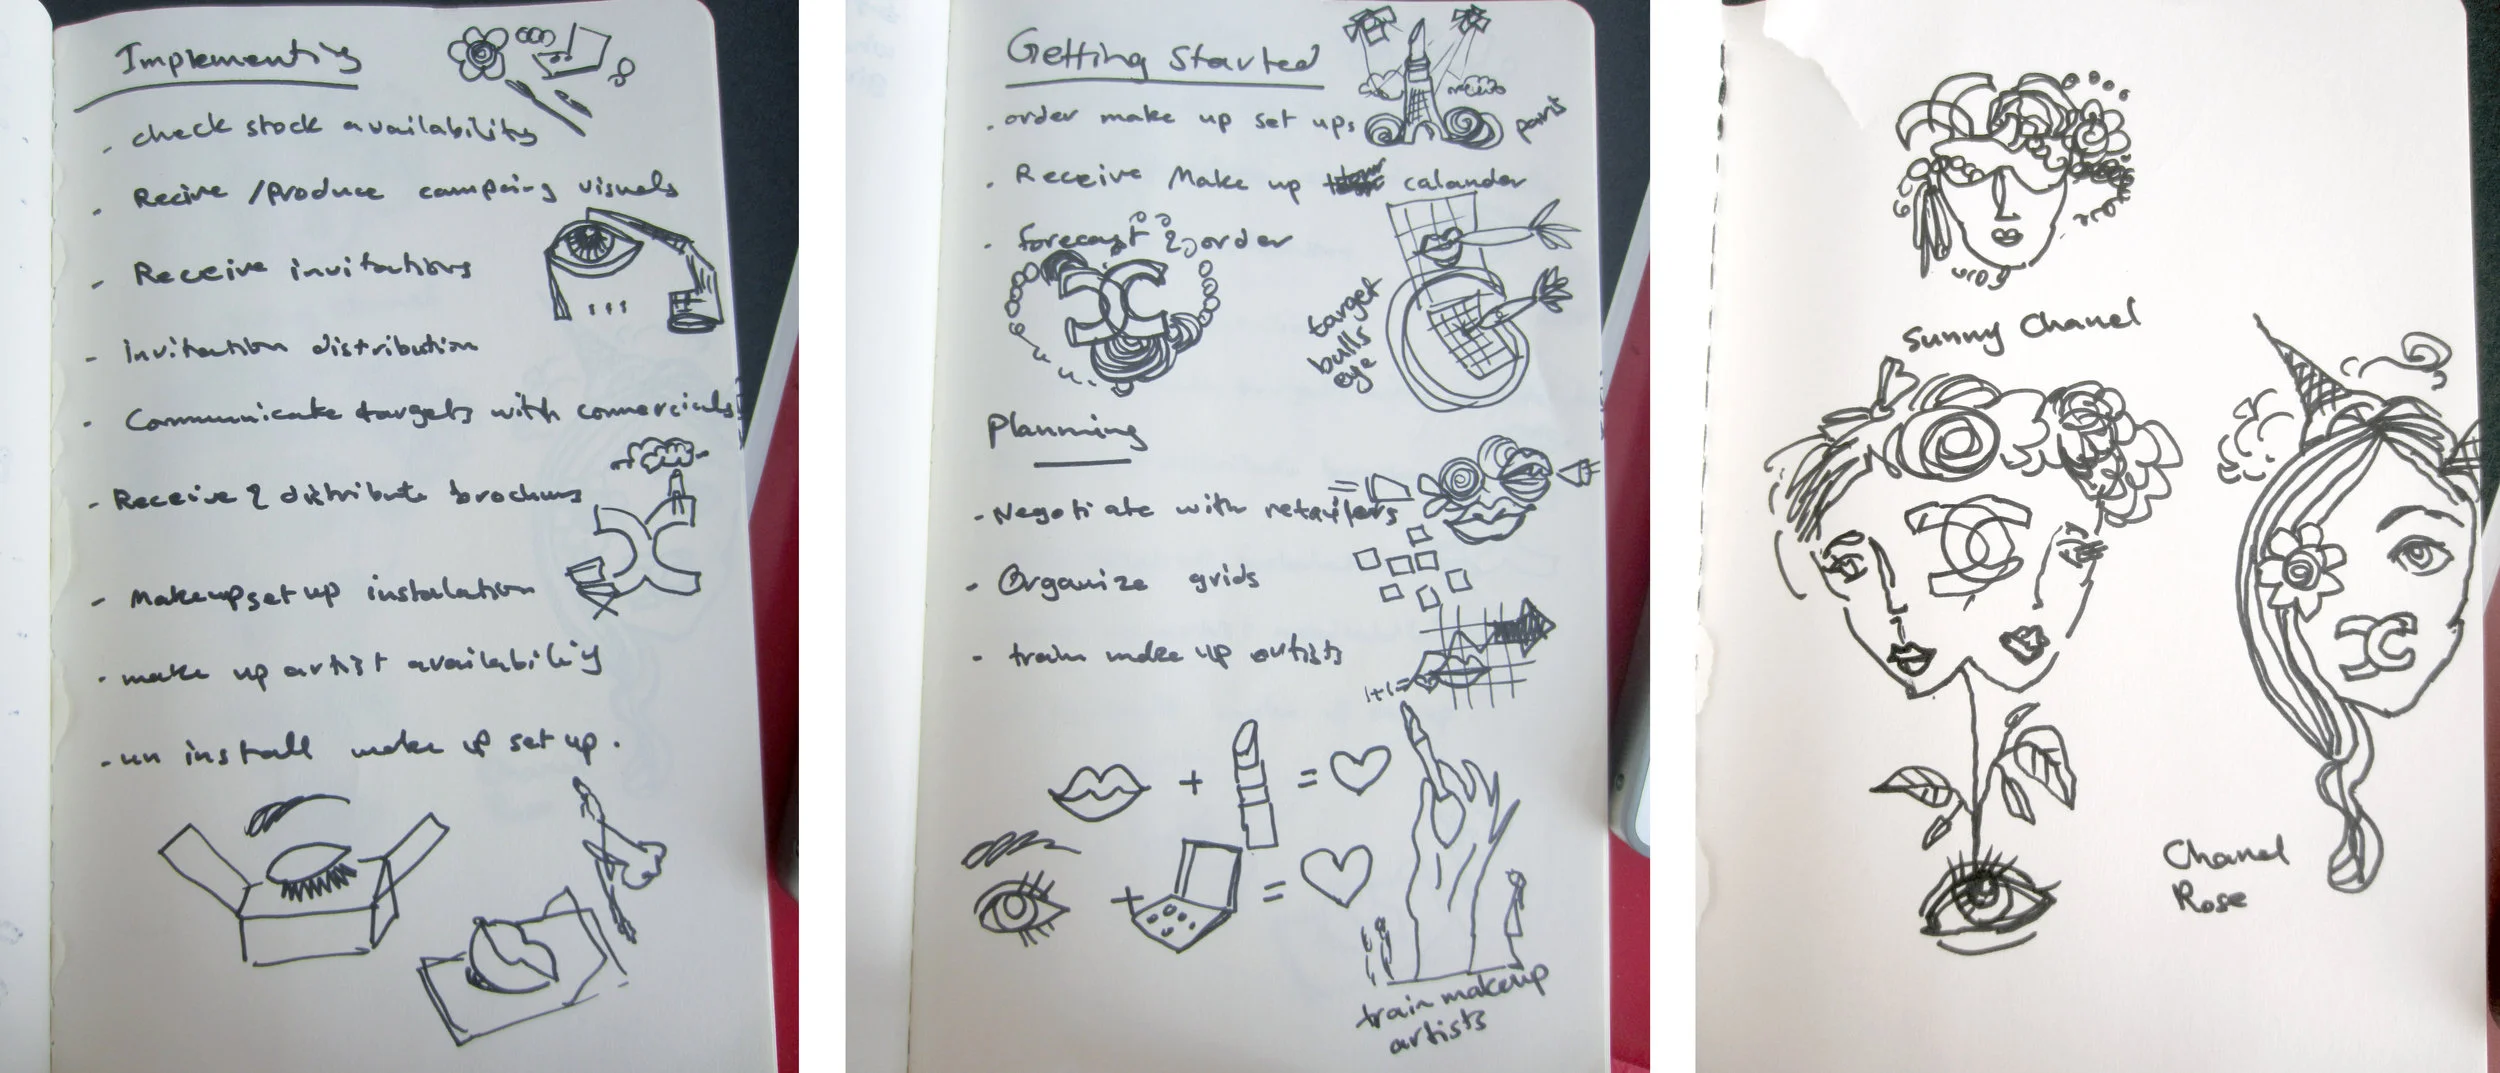 Implementing
- check stock availability
- Recive /Produce campaing visuals
- Receive invitations
- invitation distribution
- Communicate targets with commercials
- Receive & distribute brochurs
- Makeup set up instalation
- make up artist availability
- un install make up set up.
Getting Started
. order make up set ups
paris
. Receive Make up calander
. forecast & order
target
bulls
eye
Planning
- Negotiate with retailers
- Organize grids
- train make up artists
1+1=
+ =
+ =
train makeup
artists
Sunny Chanel
Chanel
Rose